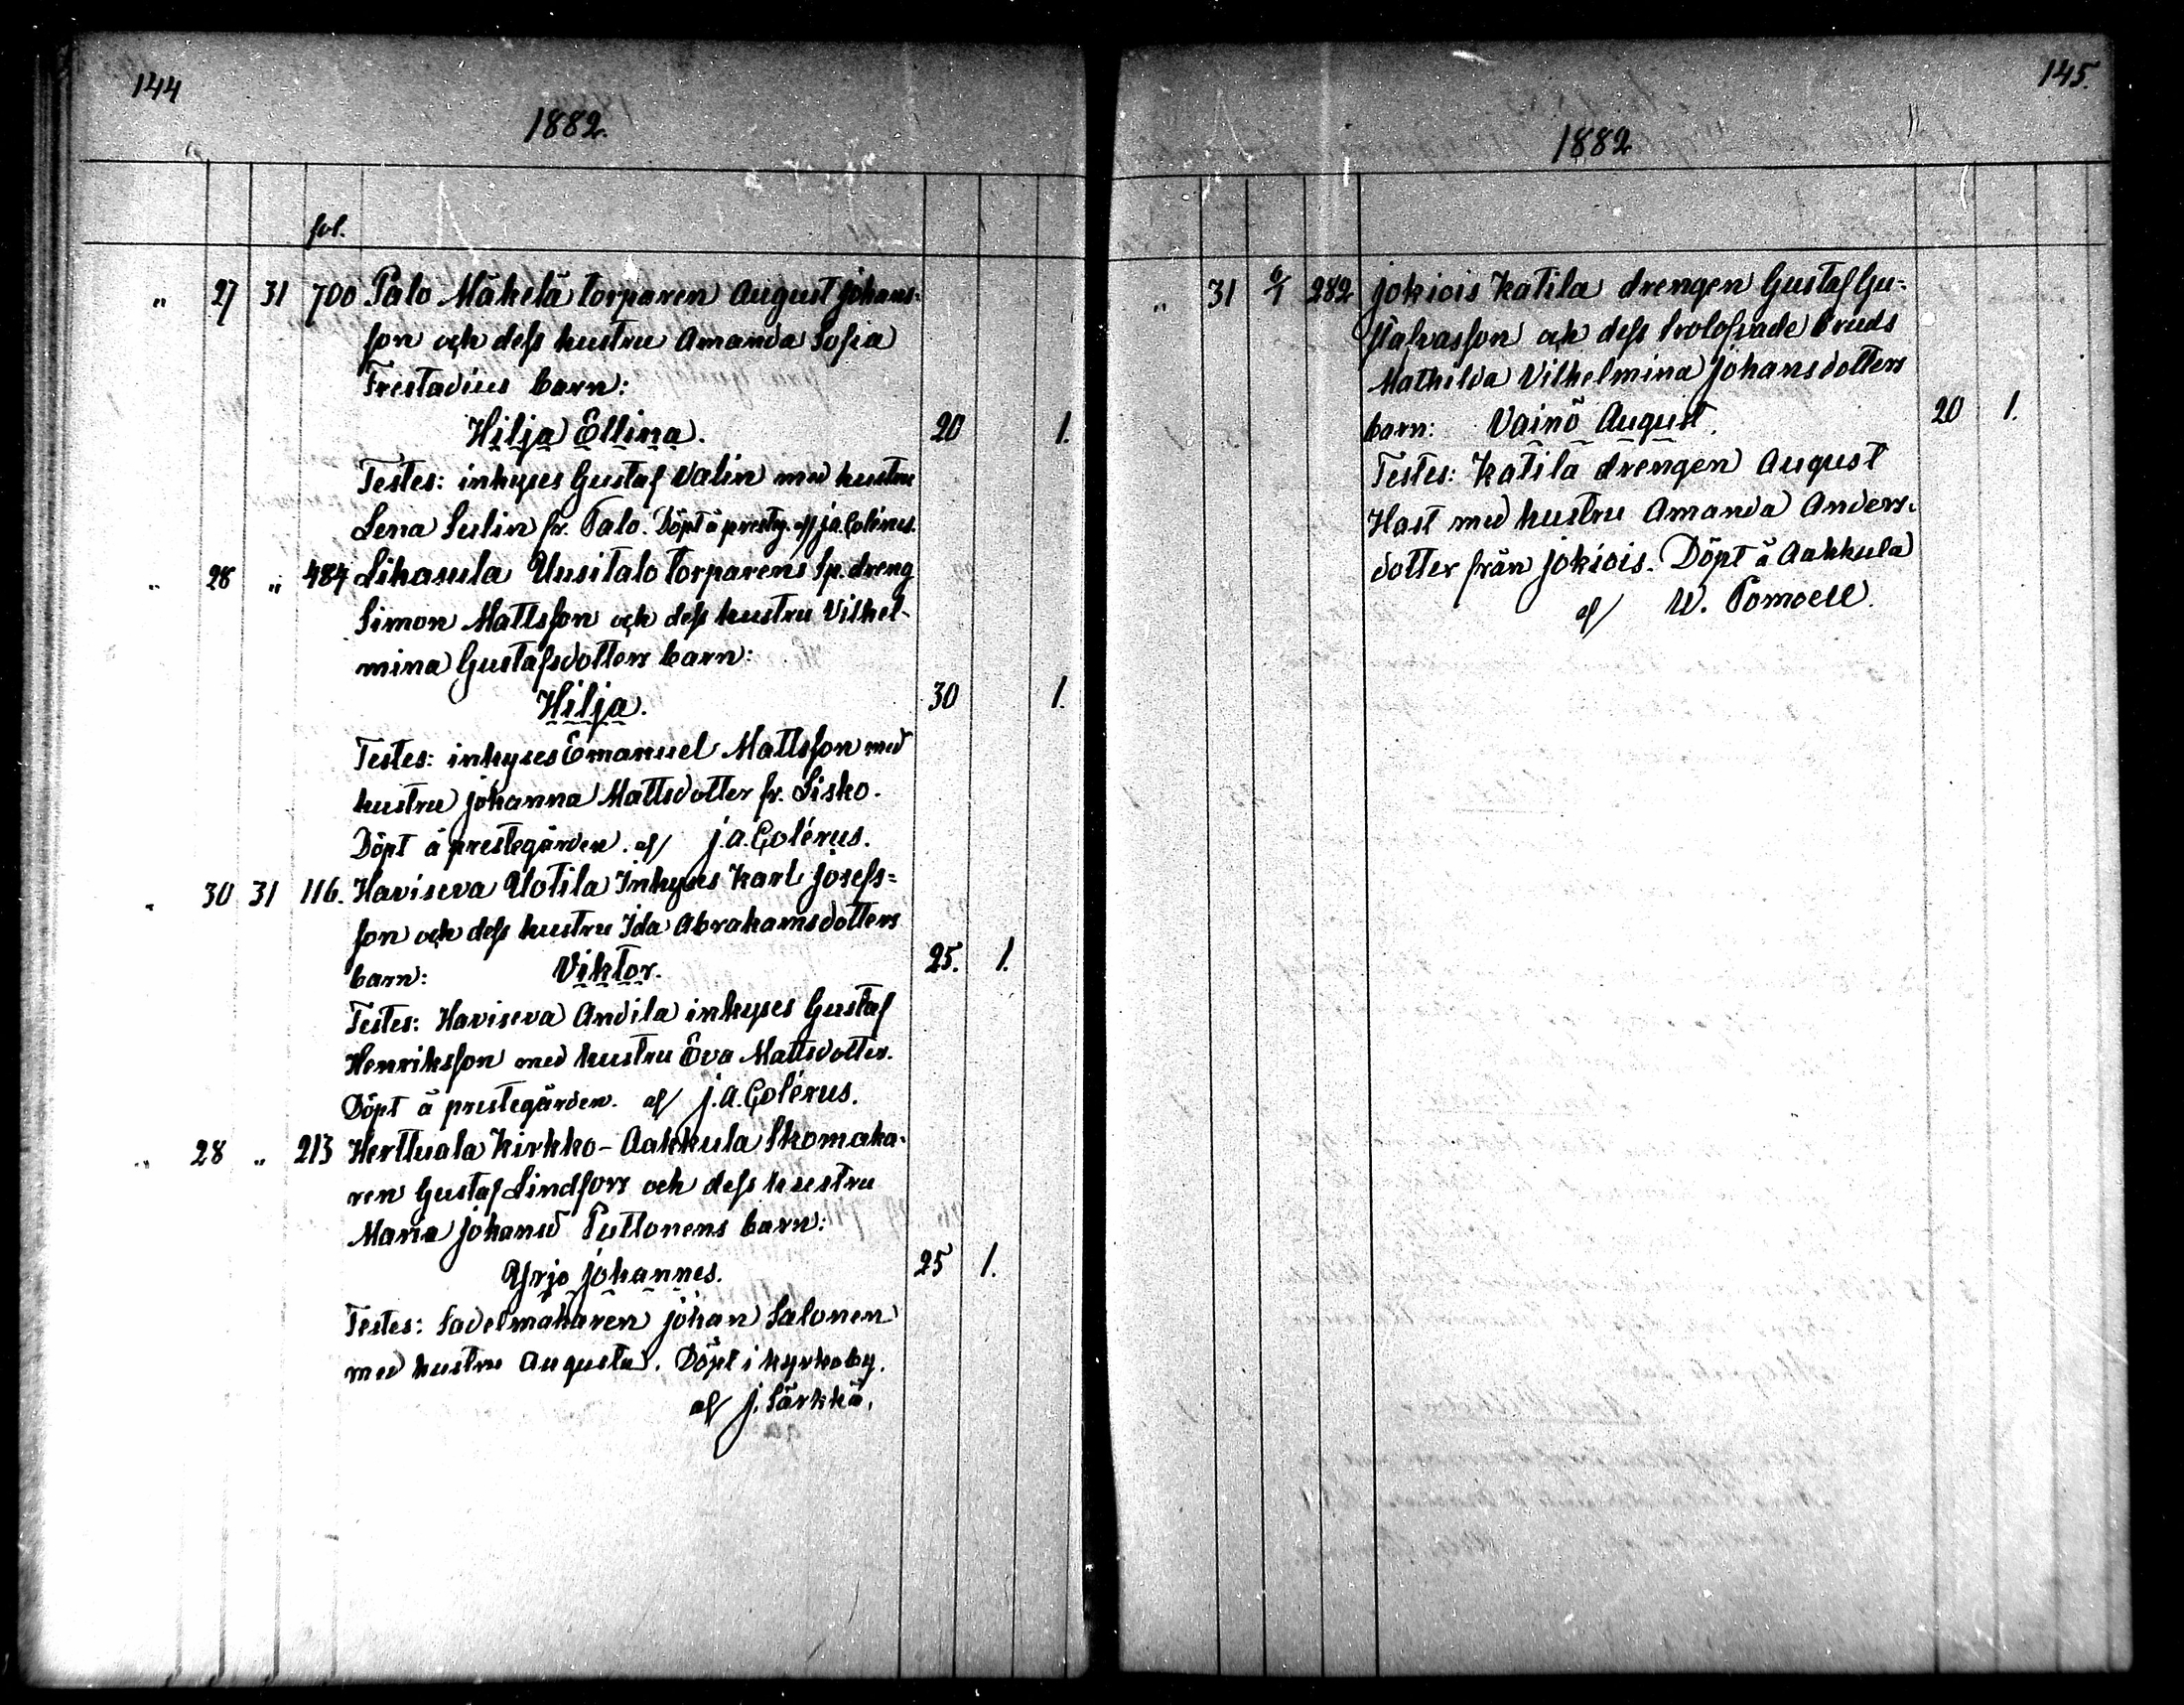 144
1882.
fol.
" 27 31 700 Palo Mäkelä torparen August Johans-
son och dess hustru Amanda Sofia
Frestadius barn:
Hilja Ellina. 20 1.
Testes: inhyses Gustaf Valin med hustru
Lena Sulin fr. Palo. Döpt å prestg. af J.A. Colérus.
" 28 " 484 Lihasula Uusitalo torparens sp. dreng
Simon Mattsson och dess hustru Vilhel-
mina Gustafsdotters barn:
Hilja. 30 1.
Testes: inhyses Emanuel Mattsson med
hustru Johanna Mattsdotter fr. Sisko.
Döpt å prestegården. af J.A. Colérus.
" 30 31 116. Haviseva Uotila Inhyses Karl Josefs-
son och dess hustru Ida Abrahamsdotters
barn: Viktor. 25. 1.
Testes: Haviseva Andila inhyses Gustaf
Henriksson med hustru Eva Mattsdotter.
Döpt å prestegården. af J.A. Colérus.
" 28 " 213 Herttuala Kirkko-Aakkula Skomaka-
ren Gustaf Lindfors och dess hustru
Maria Johansd Puttonens barn:
Yrjo Johannes. 25 1.
Testes: Sadelmakaren Johan Salonen
med hustru Augusta. Döpt i kyrkoby.
af J. Särkkä.
145.
1882
" 31 6/1 282 Jokiois Katila drengen Gustaf Gu-
stafvasson och dess trolofvade bruds
Mathilda Vilhelmina Johansdotters
barn: Vainö August. 20 1.
Testes: Katila drengen August
Hast med hustru Amanda Anders-
dotter från Jokiois. Döpt å Aakkula
af W. Pomoell.